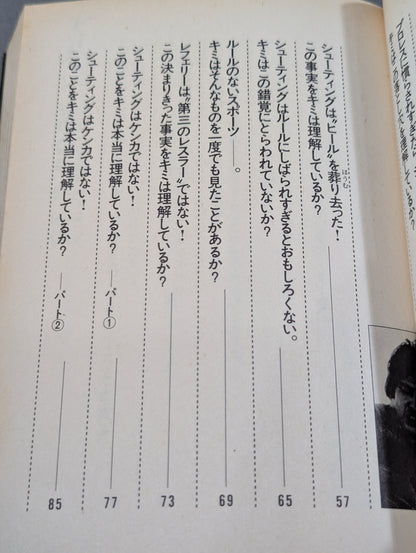 プロレスに慣らさ
シューティングは〝ヒール〟を葬り去った!
ほうむ
この事実をキミは理解しているか?
57
シューティングはルールにしばられすぎるとおもしろくない。
キミはこの錯覚にとらわれていないか?
65
ルールのないスポーツ――。
キミはそんなものを一度でも見たことがあるか?
69
レフェリーは〝第三のレスラー〟ではない!
この決まりきった事実をキミは理解しているか?
73
シューティングはケンカではない!
このことをキミは本当に理解しているか? ――パート①
77
シューティングはケンカではない!
このことをキミは本当に理解しているか? ――パート②
85